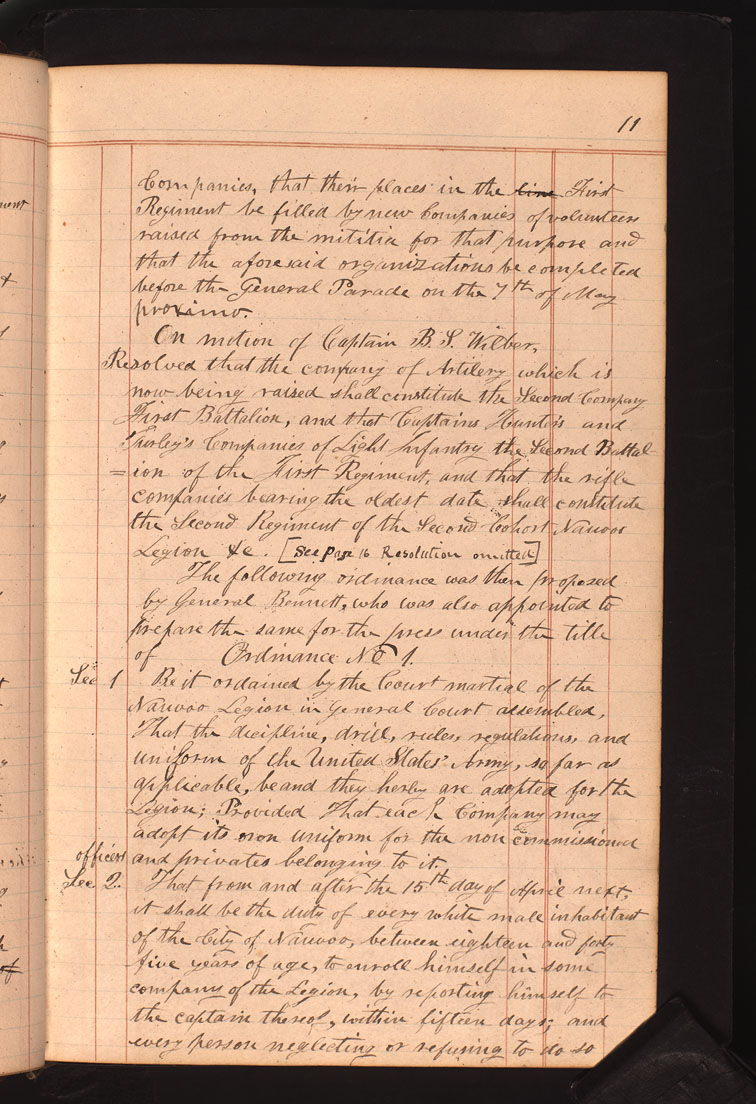 11
Companies, that their places in the line First
Regiment be filled by new Companies of volunteers
raised from the mititia for that purpose and
that the aforesaid organizations be completed
before the General Parade on the 7th of May
proximo.
On motion of Captain B. S. Wilber,
Resolved that the company of Artilery which is
now being raised shall constitute the Second Company
First Battalion, and that Captains Hunter's and
Turley's Companies of Light Infantry the Second Battal-
=ion of the First Regiment, and that the rifle
companies bearing the oldest date shall constitute
the Second Regiment of the Second Cohort Nauvoo
Legion &c. [See Page 16 Resolution omitted]
The following ordinance was then proposed
by General Bennett, who was also appointed to
prepare the same for the press under the title
of Ordinance No 1.
Sec 1 Be it ordained by the Court martial of the
Nauvoo Legion in General Court assembled,
That the dicipline, drill, rules, regulations, and
uniform of the United States' Army, so far as
applicable, be and they herby are adopted for the
Legion; Provided That each Company may
adopt its own uniform for the non commissioned
officers and privates belonging to it.
Sec 2. That from and after the 15th day of April next,
it shall be the duty of every white male inhabitant
of the City of Nauvoo, between eighteen and forty
five years of age, to enroll himself in some
company of the Legion, by reporting himself to
the captain thereof, within fifteen days; and
every person neglecting or refusing to do so